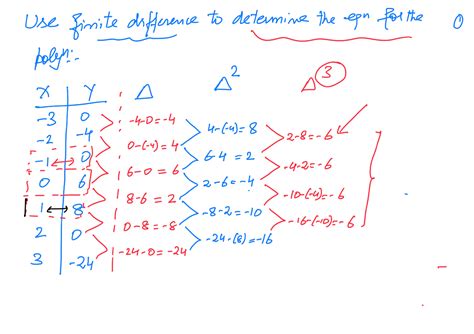 Use finite difference to determine the eqn for the 0
polyn:-
X Y Δ Δ² Δ³
-3 0
-4-0=-4
-2 -4 4-(-4)=8
0-(-4)=4 2-8=-6
-1 ↔ 0 6-4=2
6-0=6 -4-2=-6
0 6 2-6=-4
8-6=2 -10-(-4)=-6
1 ↔ 8 -8-2=-10
0-8=-8 -16-(-10)=-6
2 0 -24-(8)=-16
-24-0=-24
3 -24